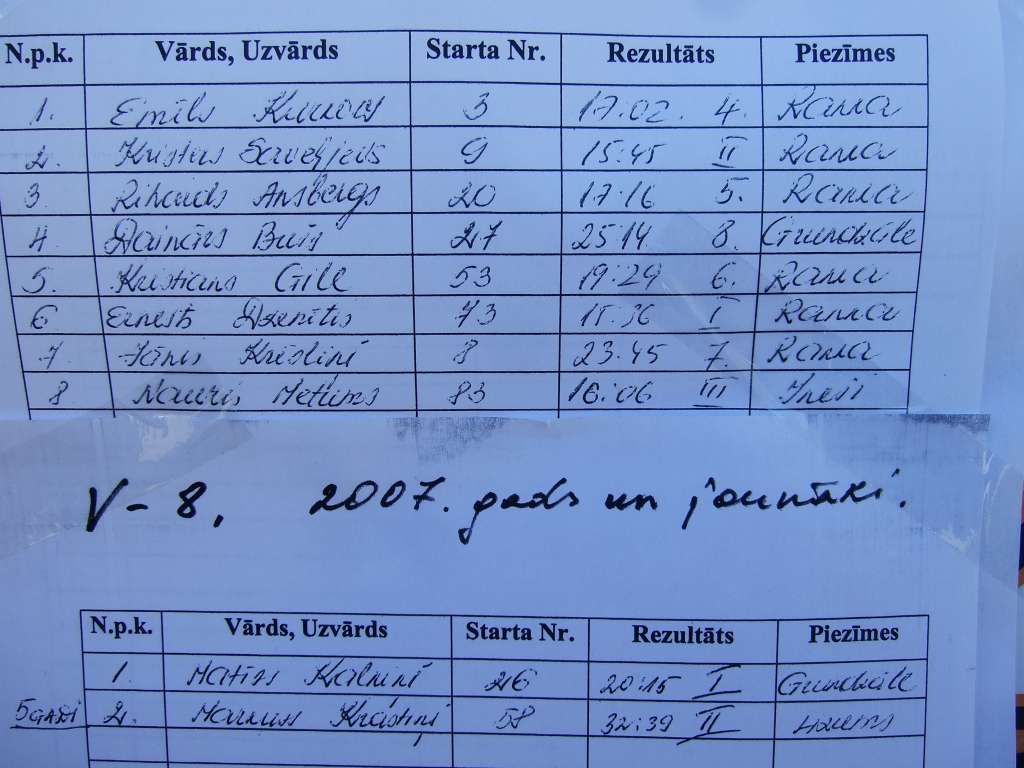 N.p.k. Vārds, Uzvārds Starta Nr. Rezultāts Piezīmes
1. Emīls 3 17:02. 4. Ranna
2. Kristers Saveļjevs 9 15:45 II Ranna
3. Rihards Ansbergs 20 17:16 5. Ranna
4. Dainārs 27 25:14. 8. Grundzāle
5. Kristians Gile 53 19:29 6. Ranna
6 Ernests Dzenītis 73 15:36 I Ranna
7. Jānis Krēsliņi 8 23:45 7. Ranna
8 Nauris Mētiens 83 16:06 III
V-8, 2007. gads un jaunāki.
N.p.k. Vārds, Uzvārds Starta Nr. Rezultāts Piezīmes
1. Matīss Kalniņi 26 20:15 I Grundzāle
5 GADI 2. Markuss 58 32:39 II